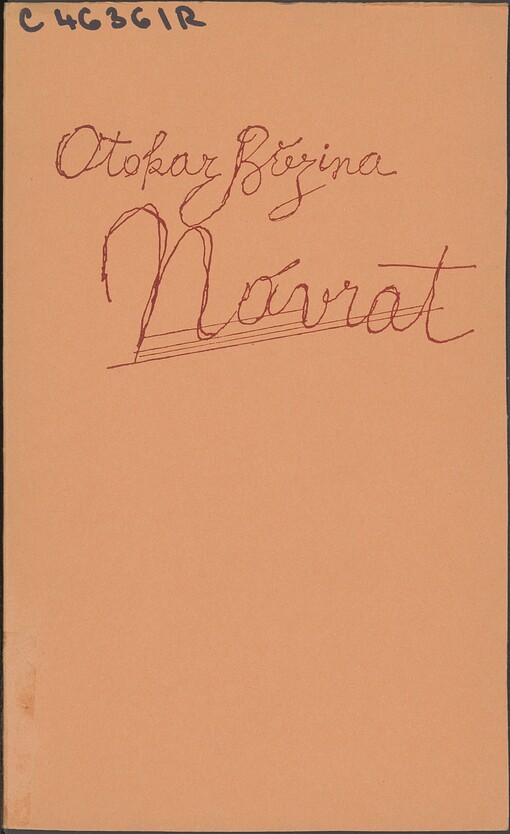 C 46361R
Otokar Březina
Návrat